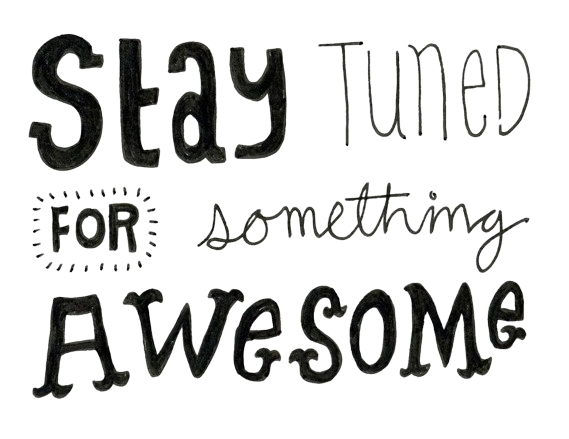 Stay TUNED
FOR something
AWeSOMe